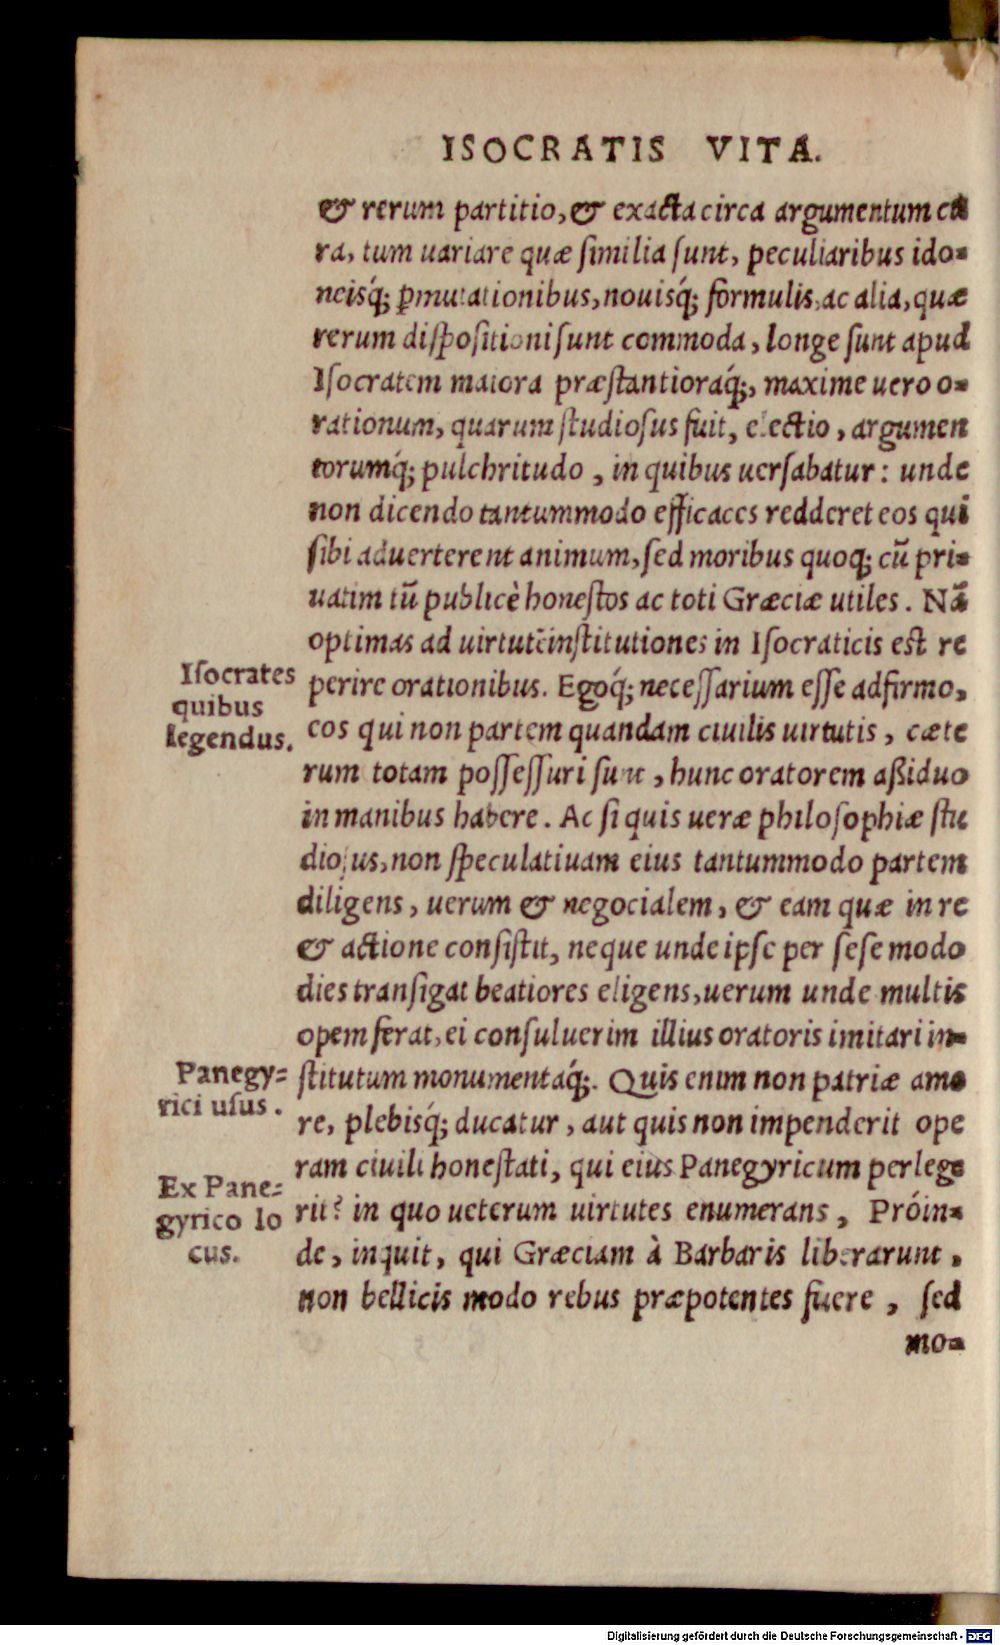 ISOCRATIS VITA.
& rerum partitio, & exacta circa argumentum cu
ra, tum uariare quæ ſimilia ſunt, peculiaribus ido-
neisq́; ꝑmutationibus, nouisq́; formulis, ac alia, quæ
rerum diſpoſitioni ſunt commoda, longe ſunt apud
Iſocratem maiora præſtantioraq́;, maxime uero o-
rationum, quarum ſtudioſus fuit, electio, argumen
torumq́; pulchritudo, in quibus uerſabatur: unde
non dicendo tantummodo efficaces redderet eos qui
ſibi aduerterent animum, ſed moribus quoq; cũ pri-
uatim tũ publicè honeſtos ac toti Græciæ utiles. Nã
optimas ad uirtutẽ inſtitutiones in Iſocraticis eſt re
Iſocrates
quibus
legendus.
perire orationibus. Egoq́; neceſſarium eſſe adfirmo,
eos qui non partem quandam ciuilis uirtutis, cæte
rum totam poſſeſſuri ſunt, hunc oratorem aßiduo
in manibus habere. Ac ſi quis ueræ philoſophiæ ſtu
dioſus, non ſpeculatiuam eius tantummodo partem
diligens, uerum & negocialem, & eam quæ in re
& actione conſiſtit, neque unde ipſe per ſeſe modo
dies tranſigat beatiores eligens, uerum unde multis
opem ferat, ei conſuluerim illius oratoris imitari in-
Panegy-
rici uſus.
ſtitutum monumentaq́;. Quis enim non patriæ amo
re, plebisq́; ducatur, aut quis non impenderit ope
ram ciuili honeſtati, qui eius Panegyricum perlege
Ex Pane-
gyrico lo
cus.
rit? in quo ueterum uirtutes enumerans, Próin-
de, inquit, qui Græciam à Barbaris liberarunt,
non bellicis modo rebus præpotentes fuere, ſed
mo-
Digitalisierung gefördert durch die Deutsche Forschungsgemeinschaft - DFG